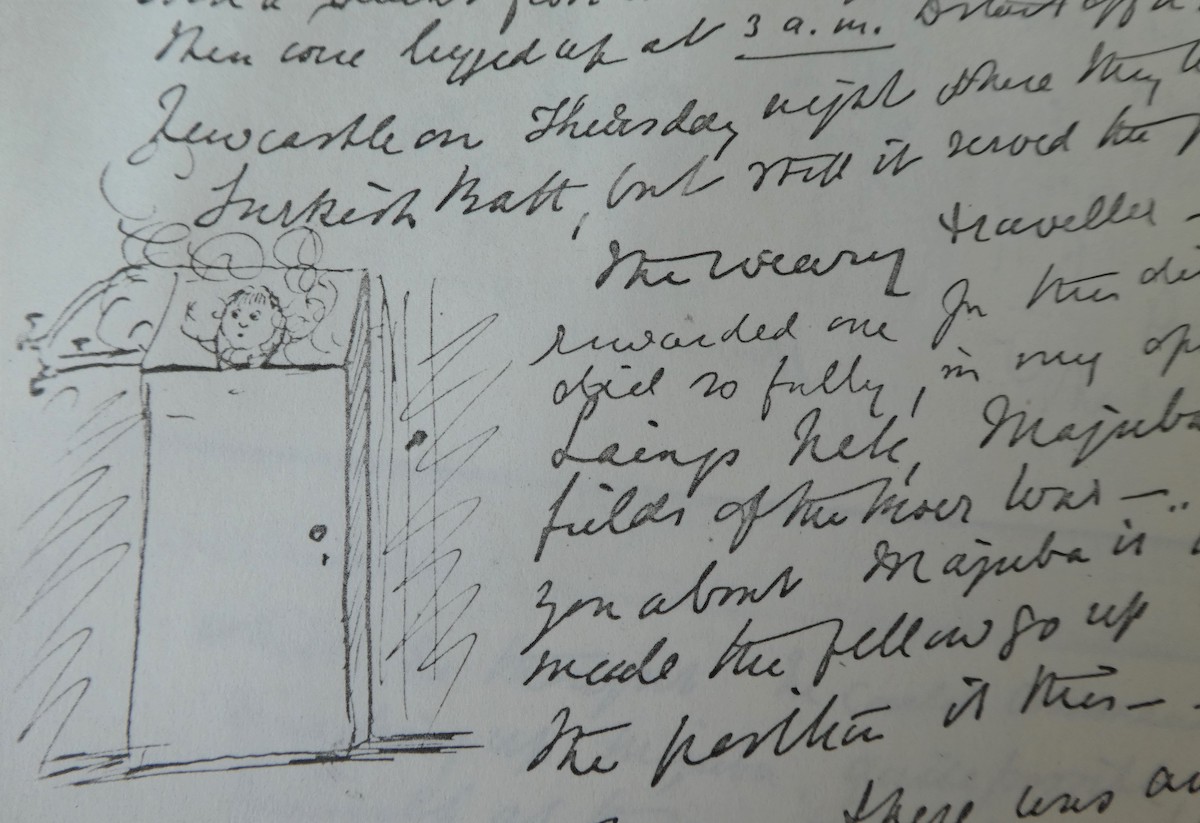 then were lugged up at 3 a.m.
Newcastle on Thursday night where they
Turkish Bath, but still it served the
the weary traveller -
rewarded one for the
did so fully, in my
Laings Nek, Majuba
fields of the Boer War -
you about Majuba is
made the fellow go up
the position is this -
there was